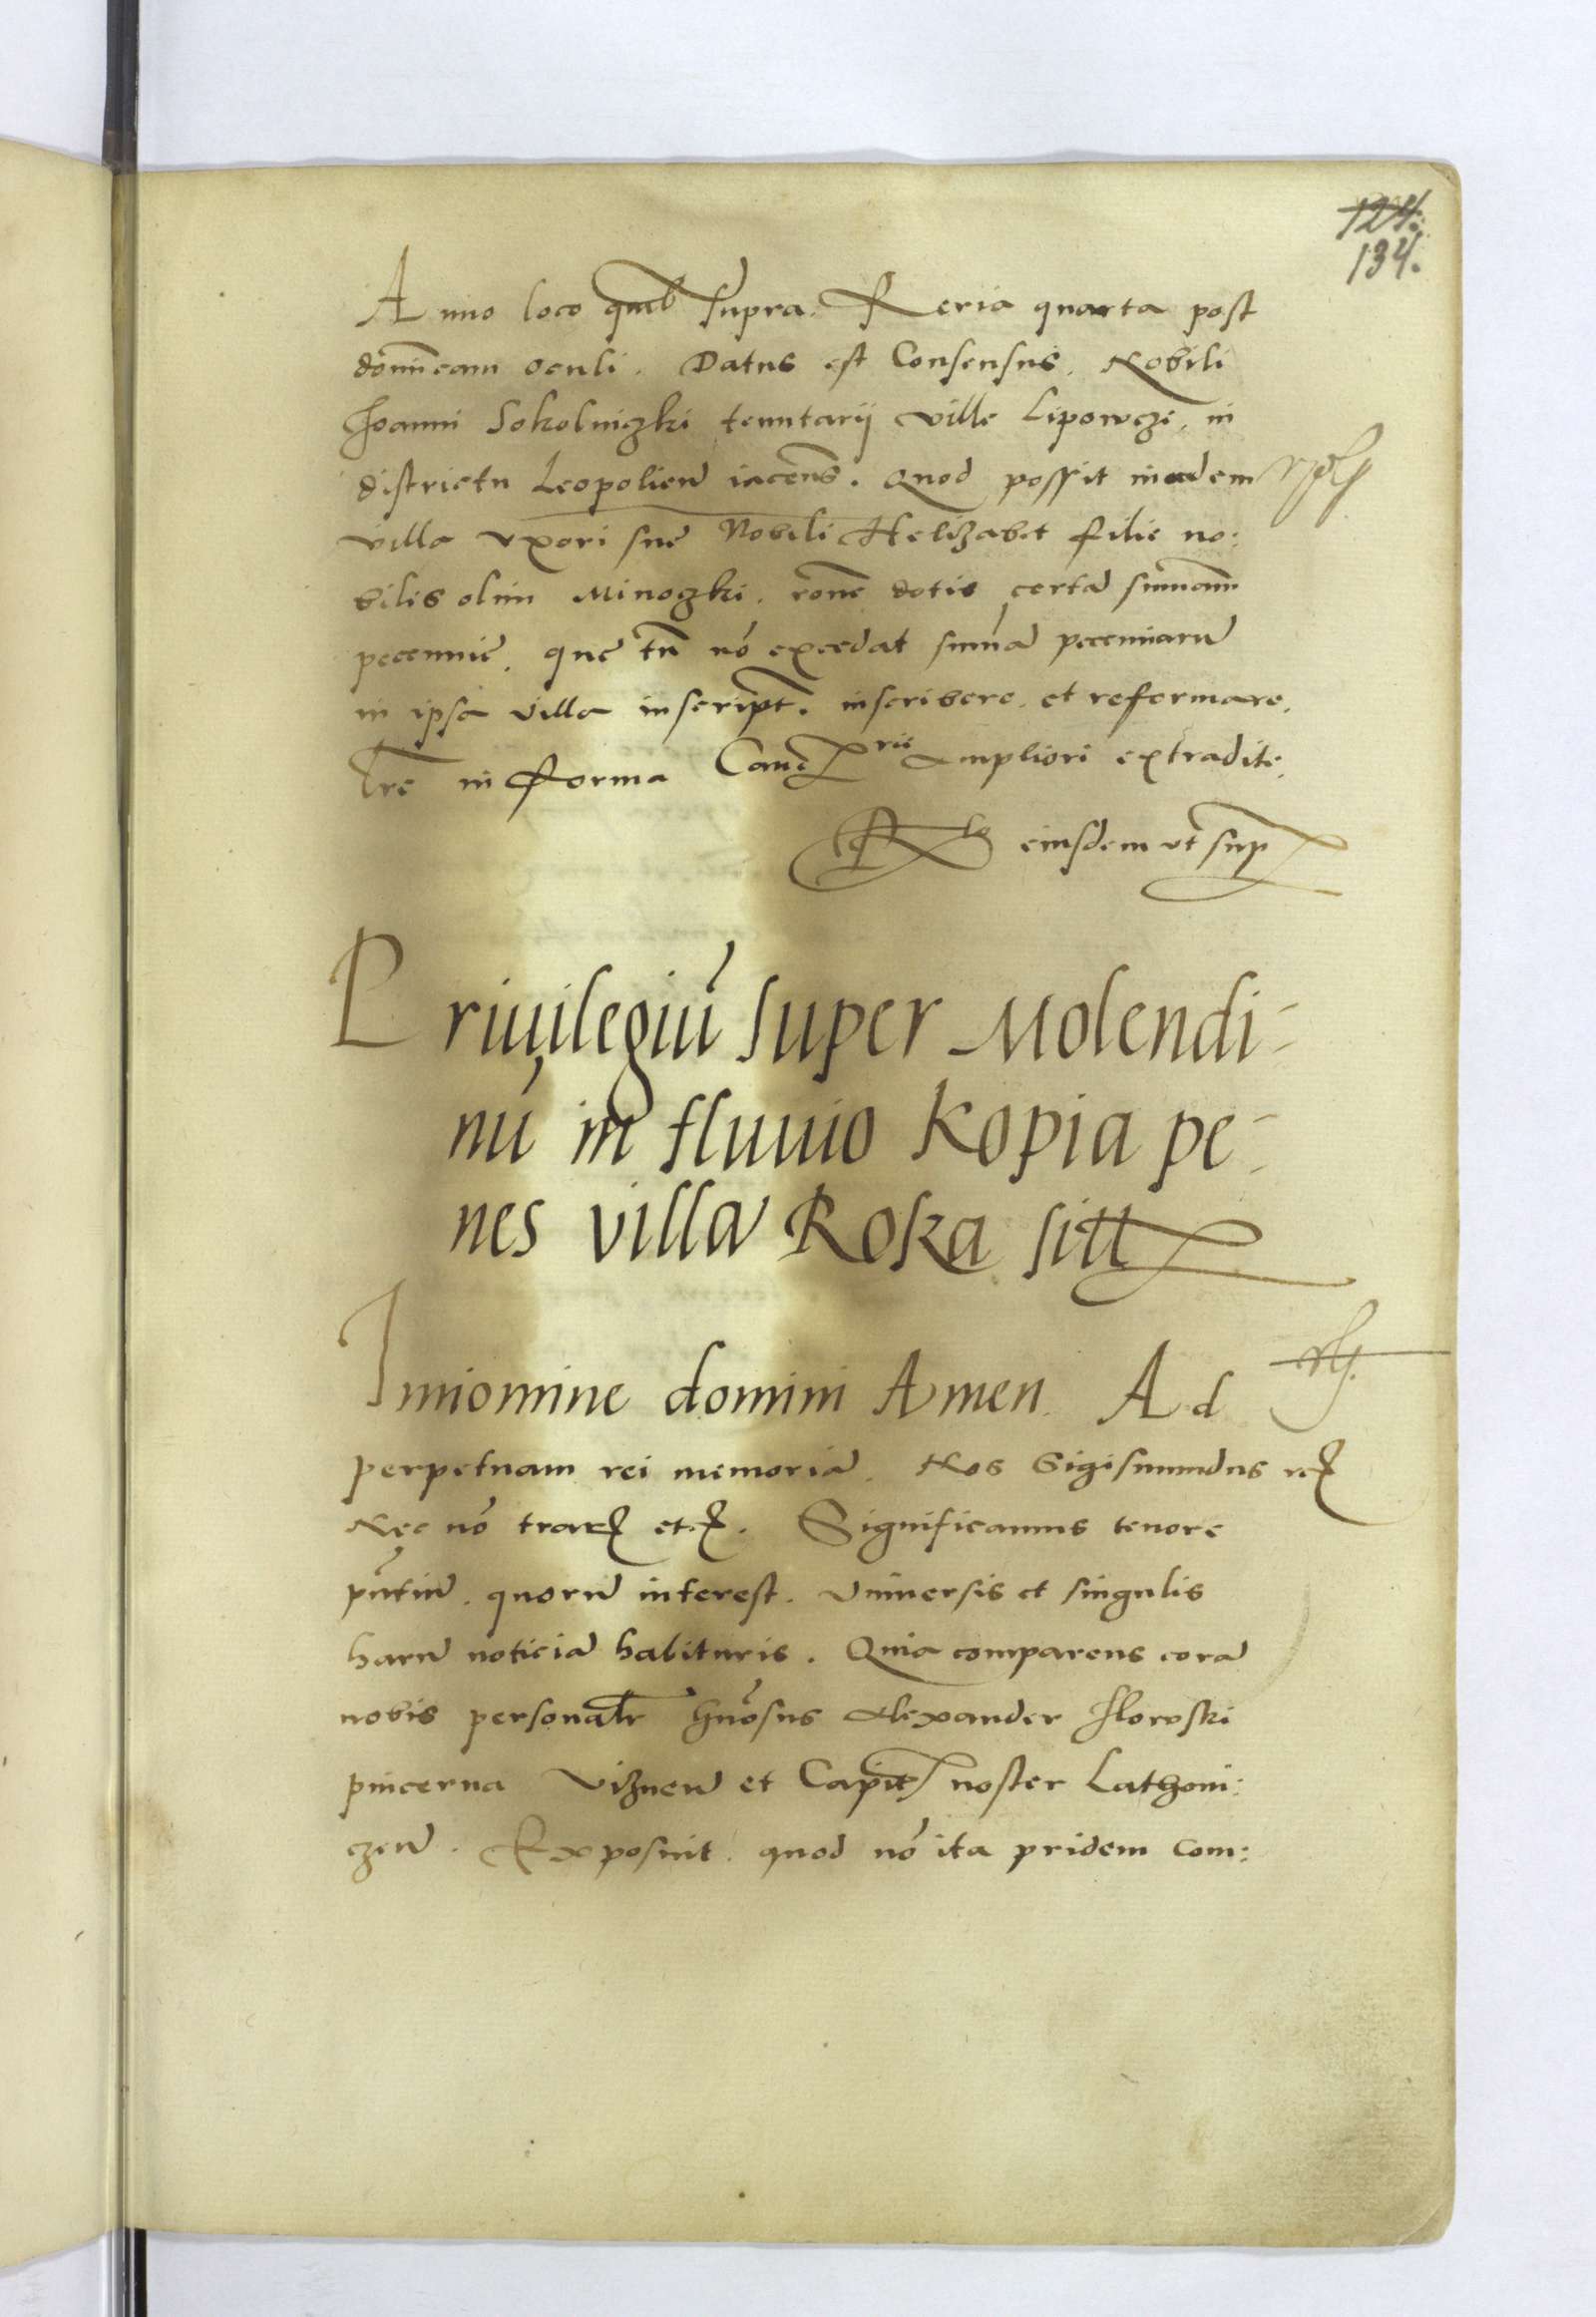 124.
134.
Anno loco quib supra. Feria quarta post
dominicam oculi. Datus est Consensus. Nobili
Joanni Sokolniczki tenutarij ville Lipowcze. in
districtu Leopolien̄ iacens̄. Quod possit in eadem
villa vxori sue Nobili Helizabet filie no:
bilis olim Minoczki. rōne dotis certā summam
peccunie. que tn̄ nō excedat summā peccuniarū
in ipsa villa inscript. inscribere. et reformare.
Lrē in forma Canc rie Ampliori extradite.
Rlo eiusdem vt sup
Priuilegiū super Molendi-
nū in fluuio Kopia pe-
nes villā Roska sitt
In nomine domini Amen. Ad
perpetuam rei memoriā. Nos Sigismundus rex
Nec nō trarz etc. Significamus tenore
pn̄tiū. quorū interest. Vniuersis et singulis
harū noticiā habituris. Quia comparens corā
nobis personalr̄ Gn̄osus Alexander Ilowski
pincerna Viznen̄ et Capit noster Lathowi:
czen̄. Exposuit. quod nō ita pridem Com: